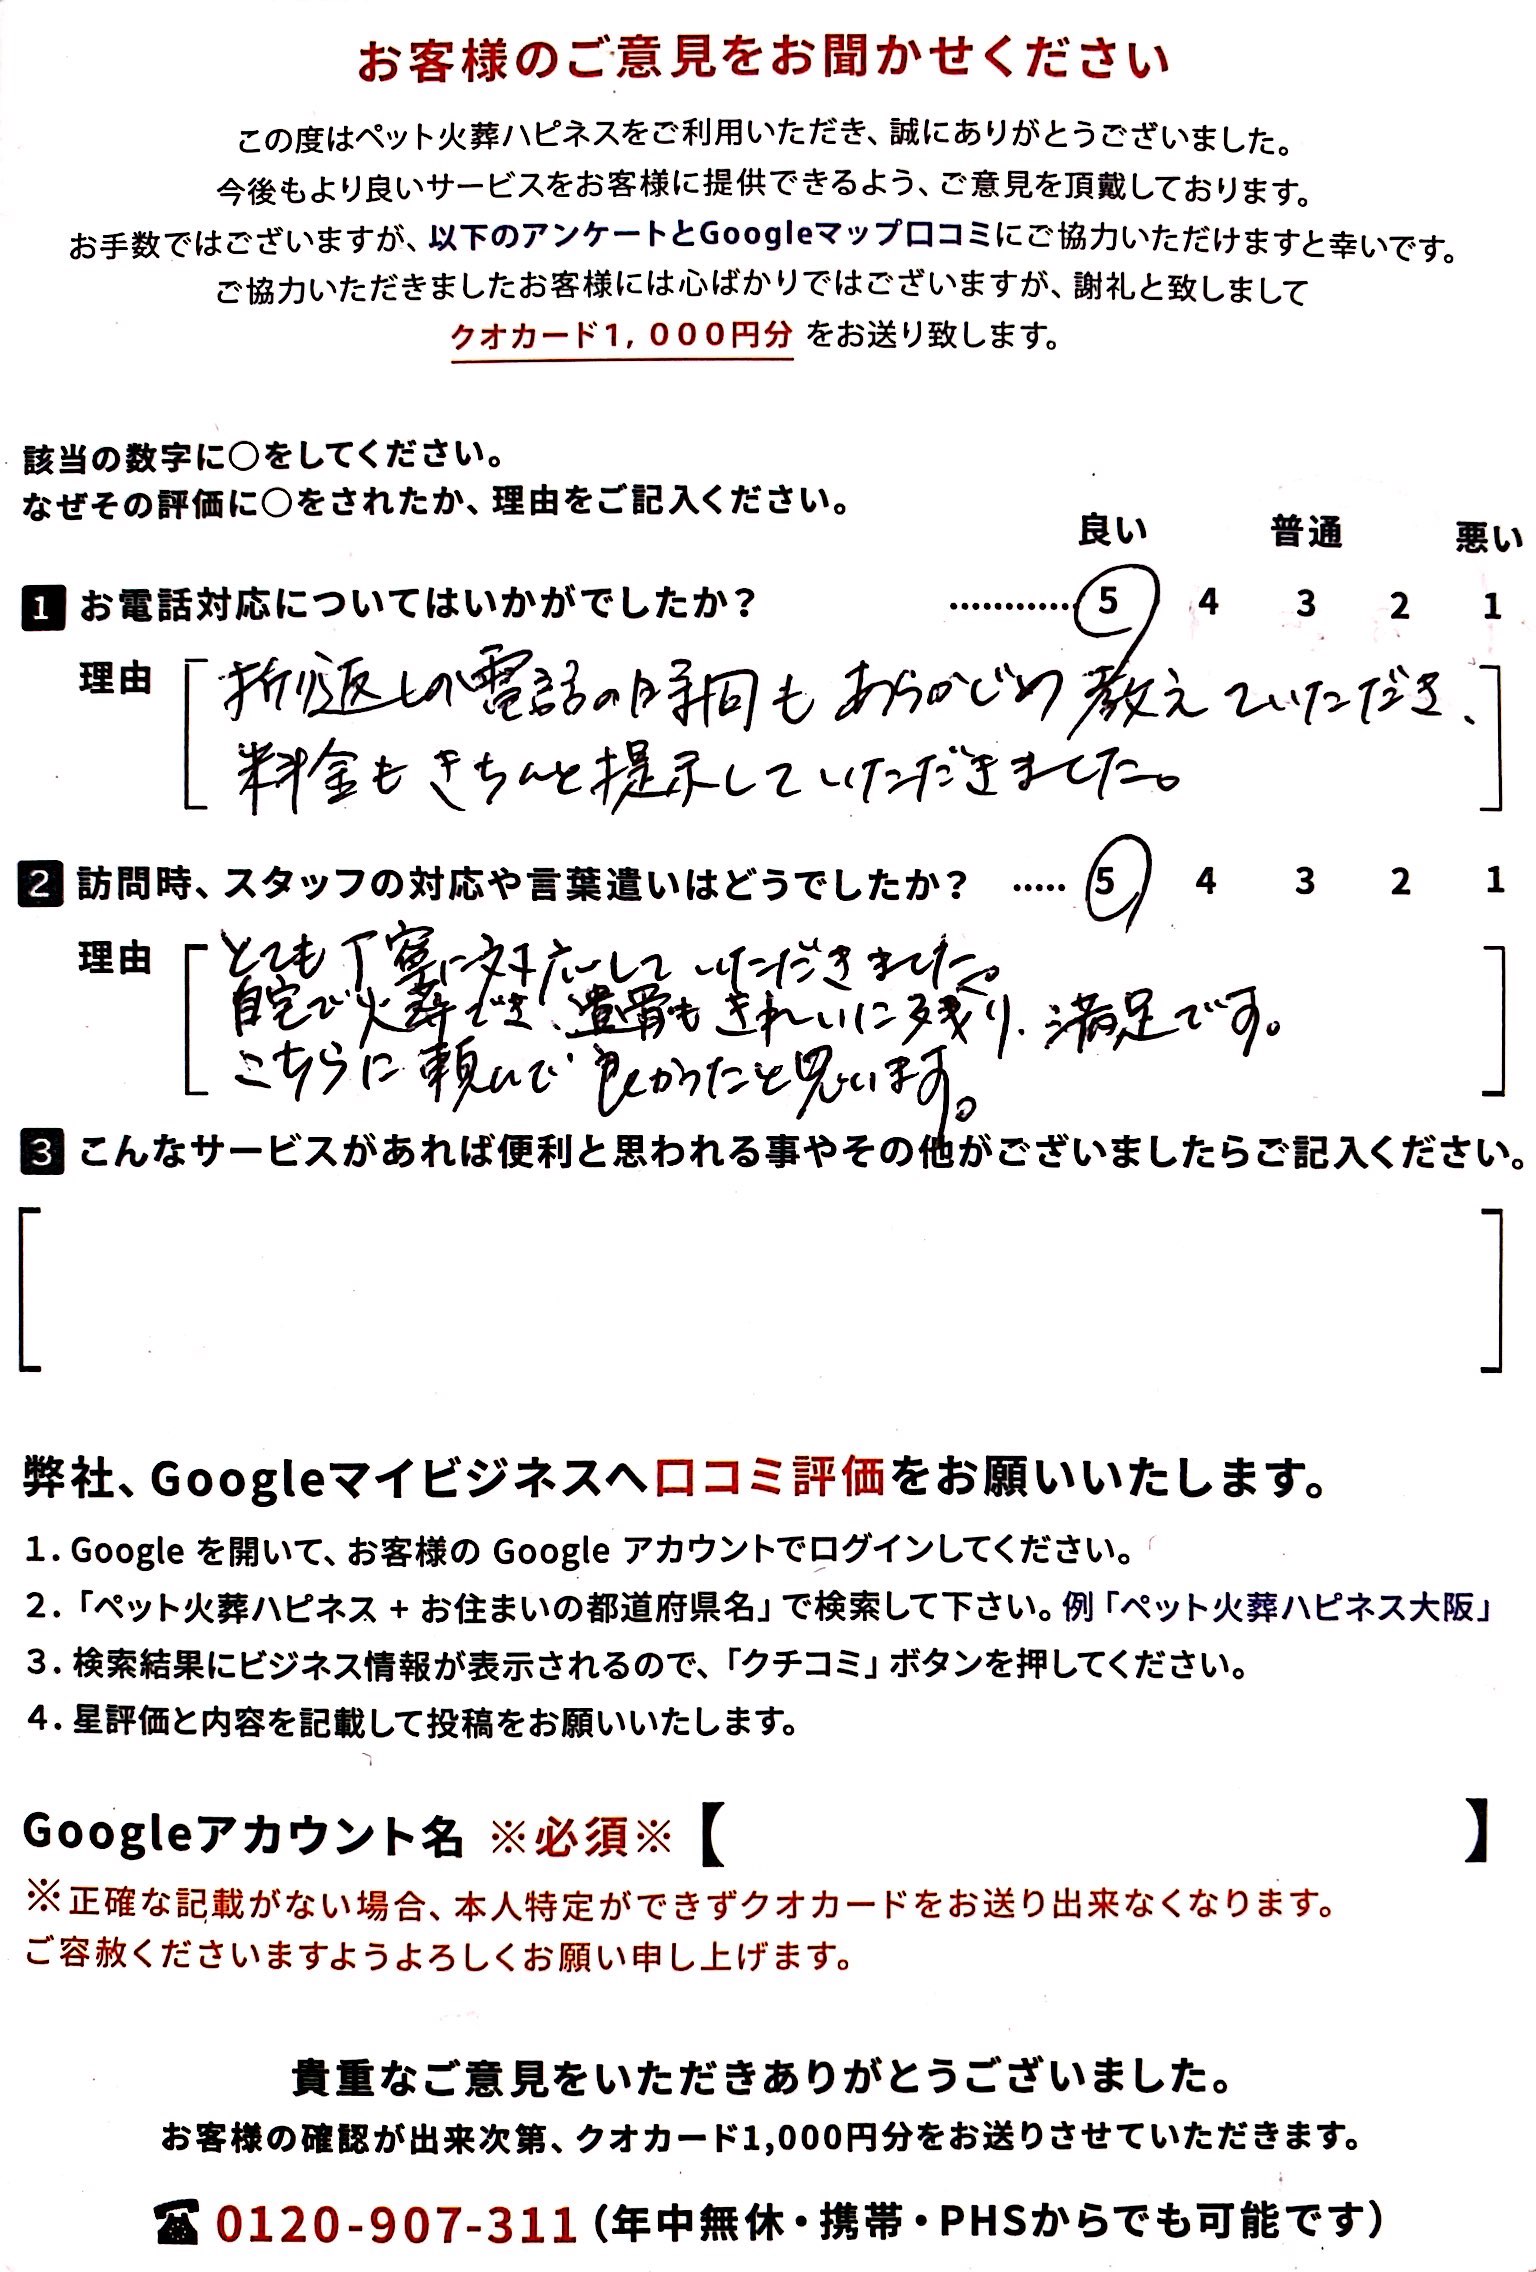 お客様のご意見をお聞かせください
この度はペット火葬ハピネスをご利用いただき、誠にありがとうございました。
今後もより良いサービスをお客様に提供できるよう、ご意見を頂戴しております。
お手数ではございますが、以下のアンケートとGoogleマップ口コミにご協力いただけますと幸いです。
ご協力いただきましたお客様には心ばかりではございますが、謝礼と致しまして
クオカード1,000円分 をお送り致します。
該当の数字に○をしてください。
なぜその評価に○をされたか、理由をご記入ください。
良い 普通 悪い
1 お電話対応についてはいかがでしたか？ ………… 5 4 3 2 1
理由 折り返しの電話の時間もあらかじめ教えていただき、
料金もきちんと提示していただきました。
2 訪問時、スタッフの対応や言葉遣いはどうでしたか？ ….. 5 4 3 2 1
理由 とても丁寧に対応していただきました。
自宅で火葬でき、遺骨もきれいに残り、満足です。
こちらに頼んで良かったと思います。
3 こんなサービスがあれば便利と思われる事やその他がございましたらご記入ください。
弊社、Googleマイビジネスへ口コミ評価をお願いいたします。
1. Google を開いて、お客様の Google アカウントでログインしてください。
2. 「ペット火葬ハピネス + お住まいの都道府県名」で検索して下さい。例「ペット火葬ハピネス大阪」
3. 検索結果にビジネス情報が表示されるので、「クチコミ」ボタンを押してください。
4. 星評価と内容を記載して投稿をお願いいたします。
Googleアカウント名 ※必須※【 】
※正確な記載がない場合、本人特定ができずクオカードをお送り出来なくなります。
ご容赦くださいますようよろしくお願い申し上げます。
貴重なご意見をいただきありがとうございました。
お客様の確認が出来次第、クオカード1,000円分をお送りさせていただきます。
☎ 0120-907-311（年中無休・携帯・PHSからでも可能です）